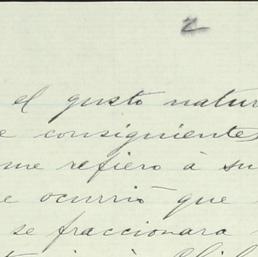 2
el gusto natur
e consiguiente
me refiero á su
e ocurrió que
se fraccionara